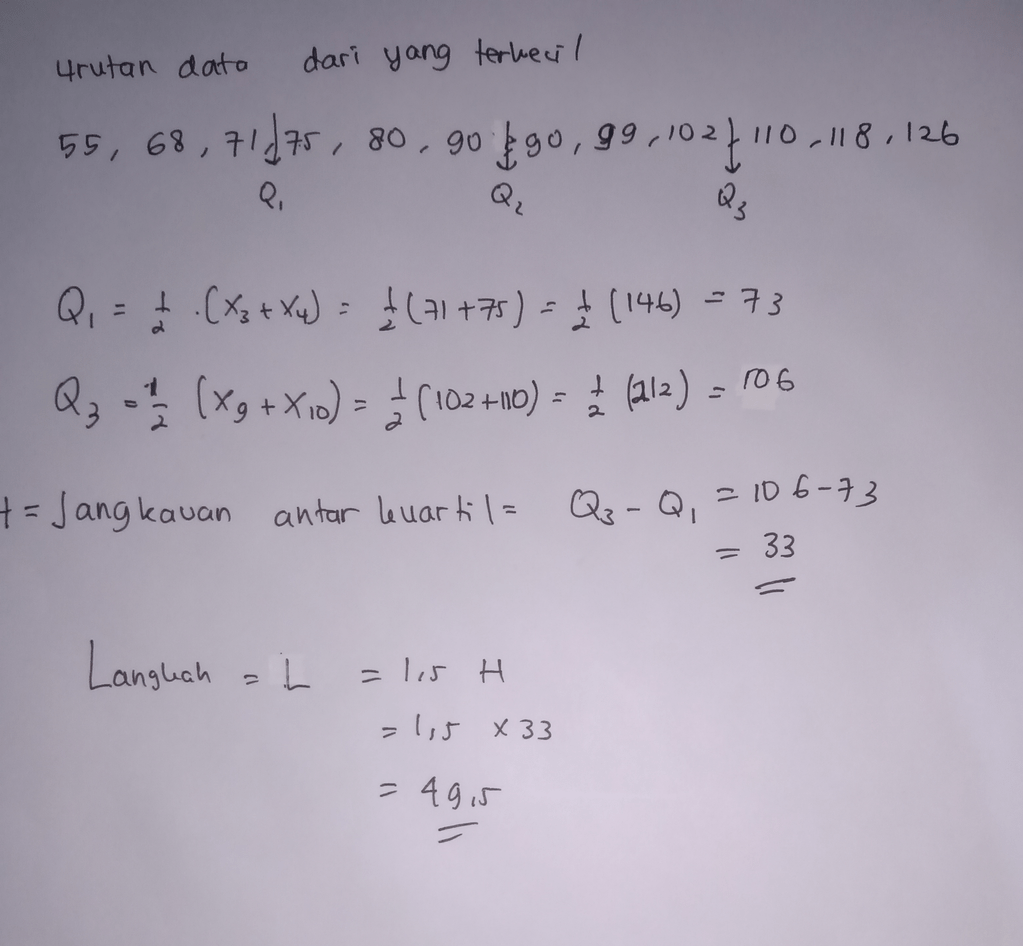 Urutan data dari yang terkecil
55, 68, 71, 75, 80, 90, 90, 99, 102, 110, 118, 126
Q₁ Q₂ Q₃
Q₁ = 1/2 . (X₃ + X₄) = 1/2 (71 + 75) = 1/2 (146) = 73
Q₃ = 1/2 (X₉ + X₁₀) = 1/2 (102 + 110) = 1/2 (212) = 106
H = Jangkauan antar kuartil = Q₃ - Q₁ = 106 - 73
= 33
Langkah = L = 1,5 H
= 1,5 x 33
= 49,5